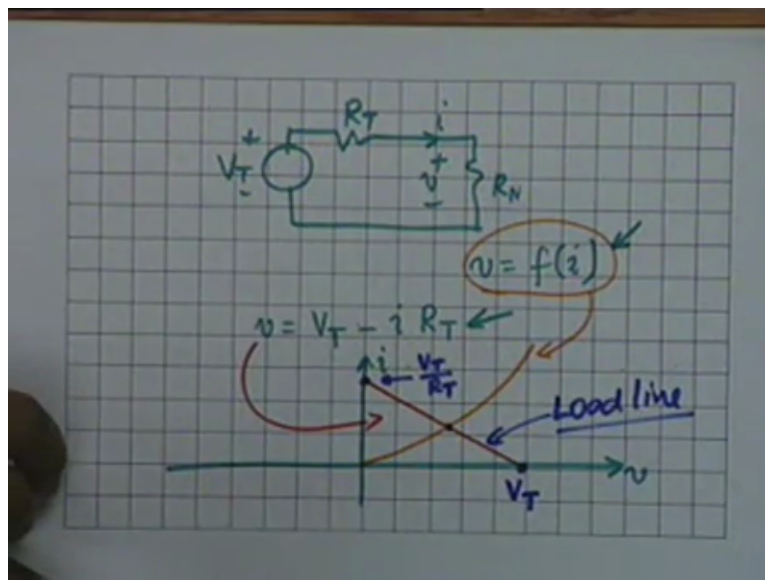 R_T i
+ +
V_T v R_N
- -
v = f(i)
v = V_T - i R_T
i V_T/R_T
Load line
V_T v